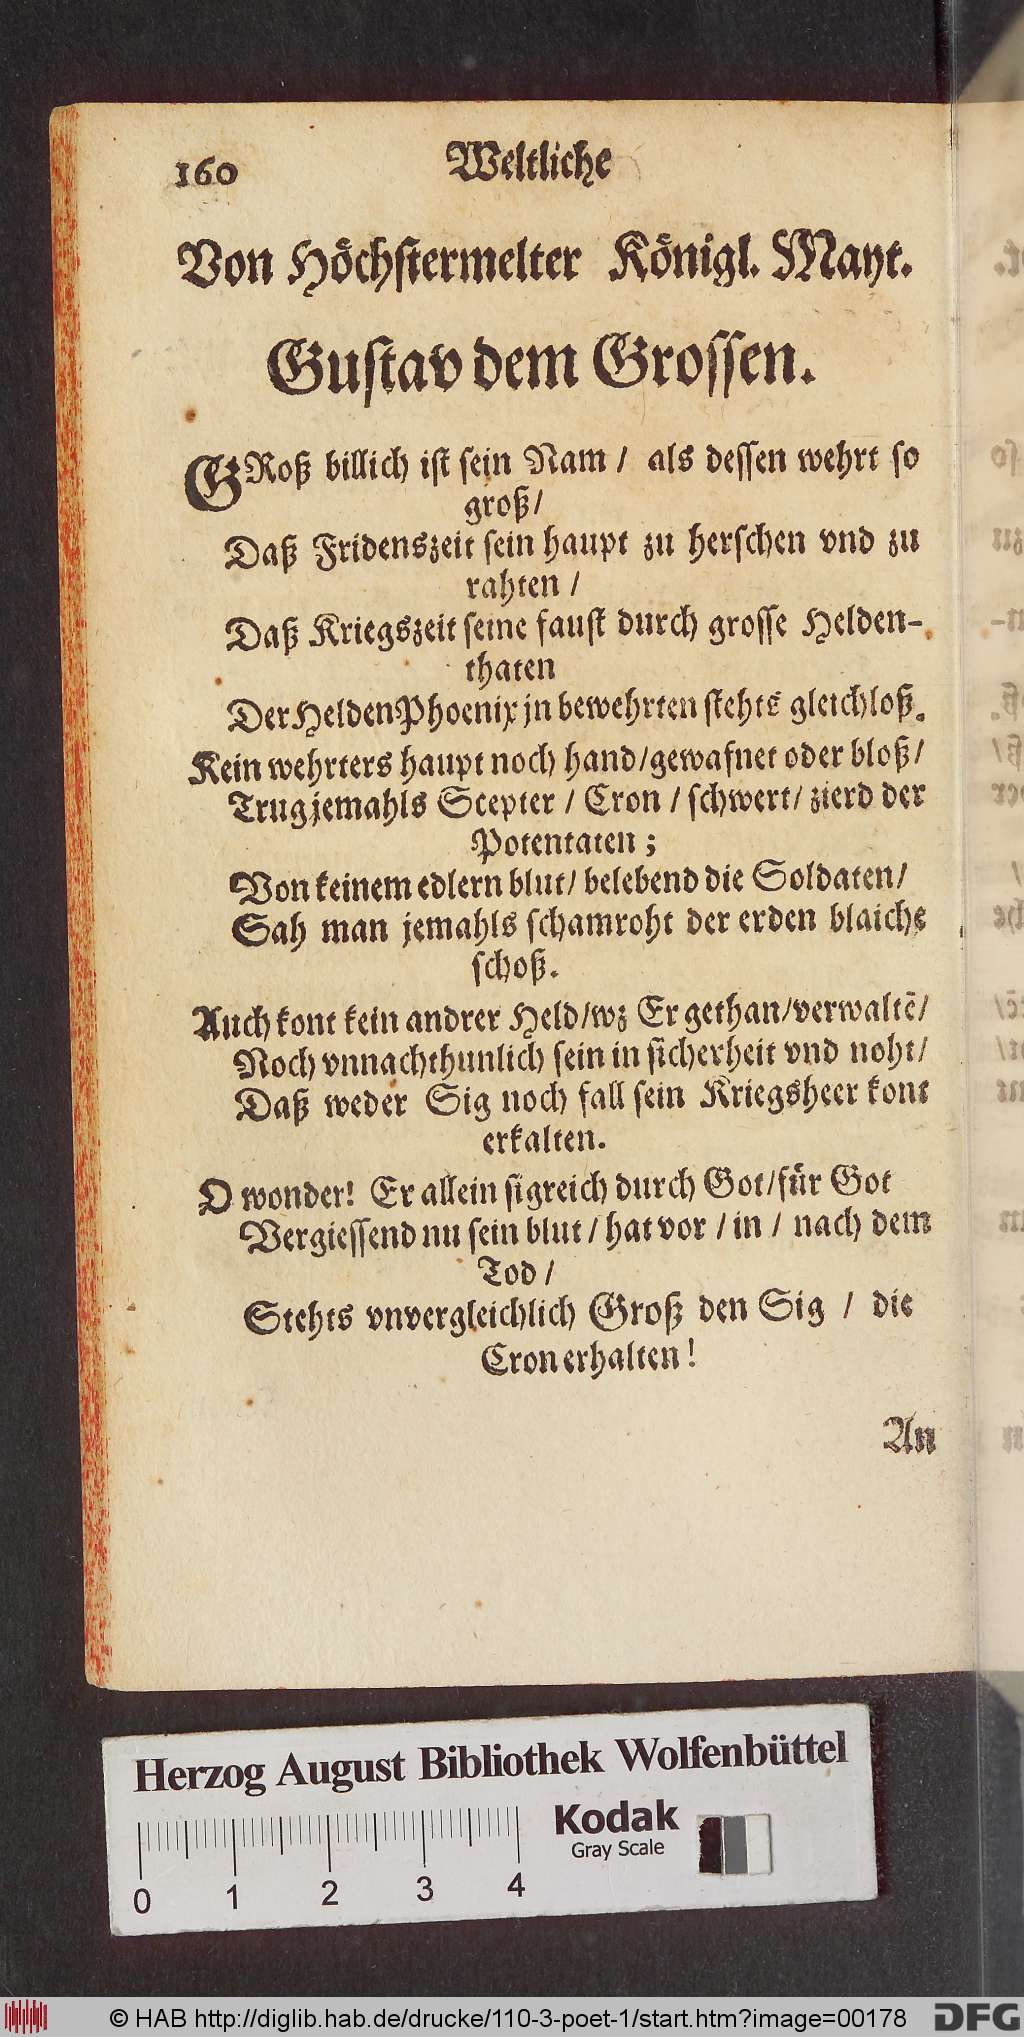 160 Weltliche
Von Höchstermelter Königl. Mayt.
Gustav dem Grossen.
GRoß billich ist sein Nam / als dessen wehrt so
groß/
Daß Fridenszeit sein haupt zu herschen vnd zu
rahten /
Daß Kriegszeit seine faust durch grosse Helden-
thaten
Der Helden Phoenix jn bewehrten stehts gleichloß.
Kein wehrters haupt noch hand/gewafnet oder bloß/
Trug jemahls Scepter / Cron / schwert/ zierd der
Potentaten ;
Von keinem edlern blut/ belebend die Soldaten/
Sah man jemahls schamroht der erden blaiche
schoß.
Auch kont kein andrer Held/wz Er gethan/verwaltē/
Noch vnnachthunlich sein in sicherheit vnd noht/
Daß weder Sig noch fall sein Kriegsheer kont
erkalten.
O wonder! Er allein sigreich durch Got/für Got
Vergiessend nu sein blut / hat vor / in / nach dem
Tod /
Stehts vnvergleichlich Groß den Sig / die
Cron erhalten !
An
Herzog August Bibliothek Wolfenbüttel
Kodak
Gray Scale
0 1 2 3 4
© HAB http://diglib.hab.de/drucke/110-3-poet-1/start.htm?image=00178
DFG